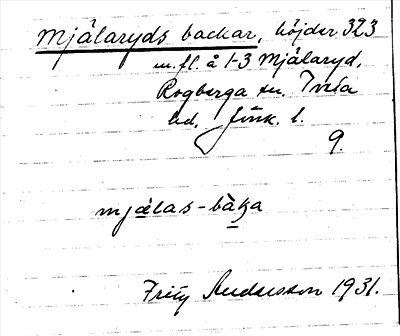 Mjälaryds backar, höjder 323
m. fl. å 1-3 Mjälaryd,
Rogberga sn. Tveta
hd, Jönk. l.
9.
mjælas-bàka
Fritz Andersson 1931.